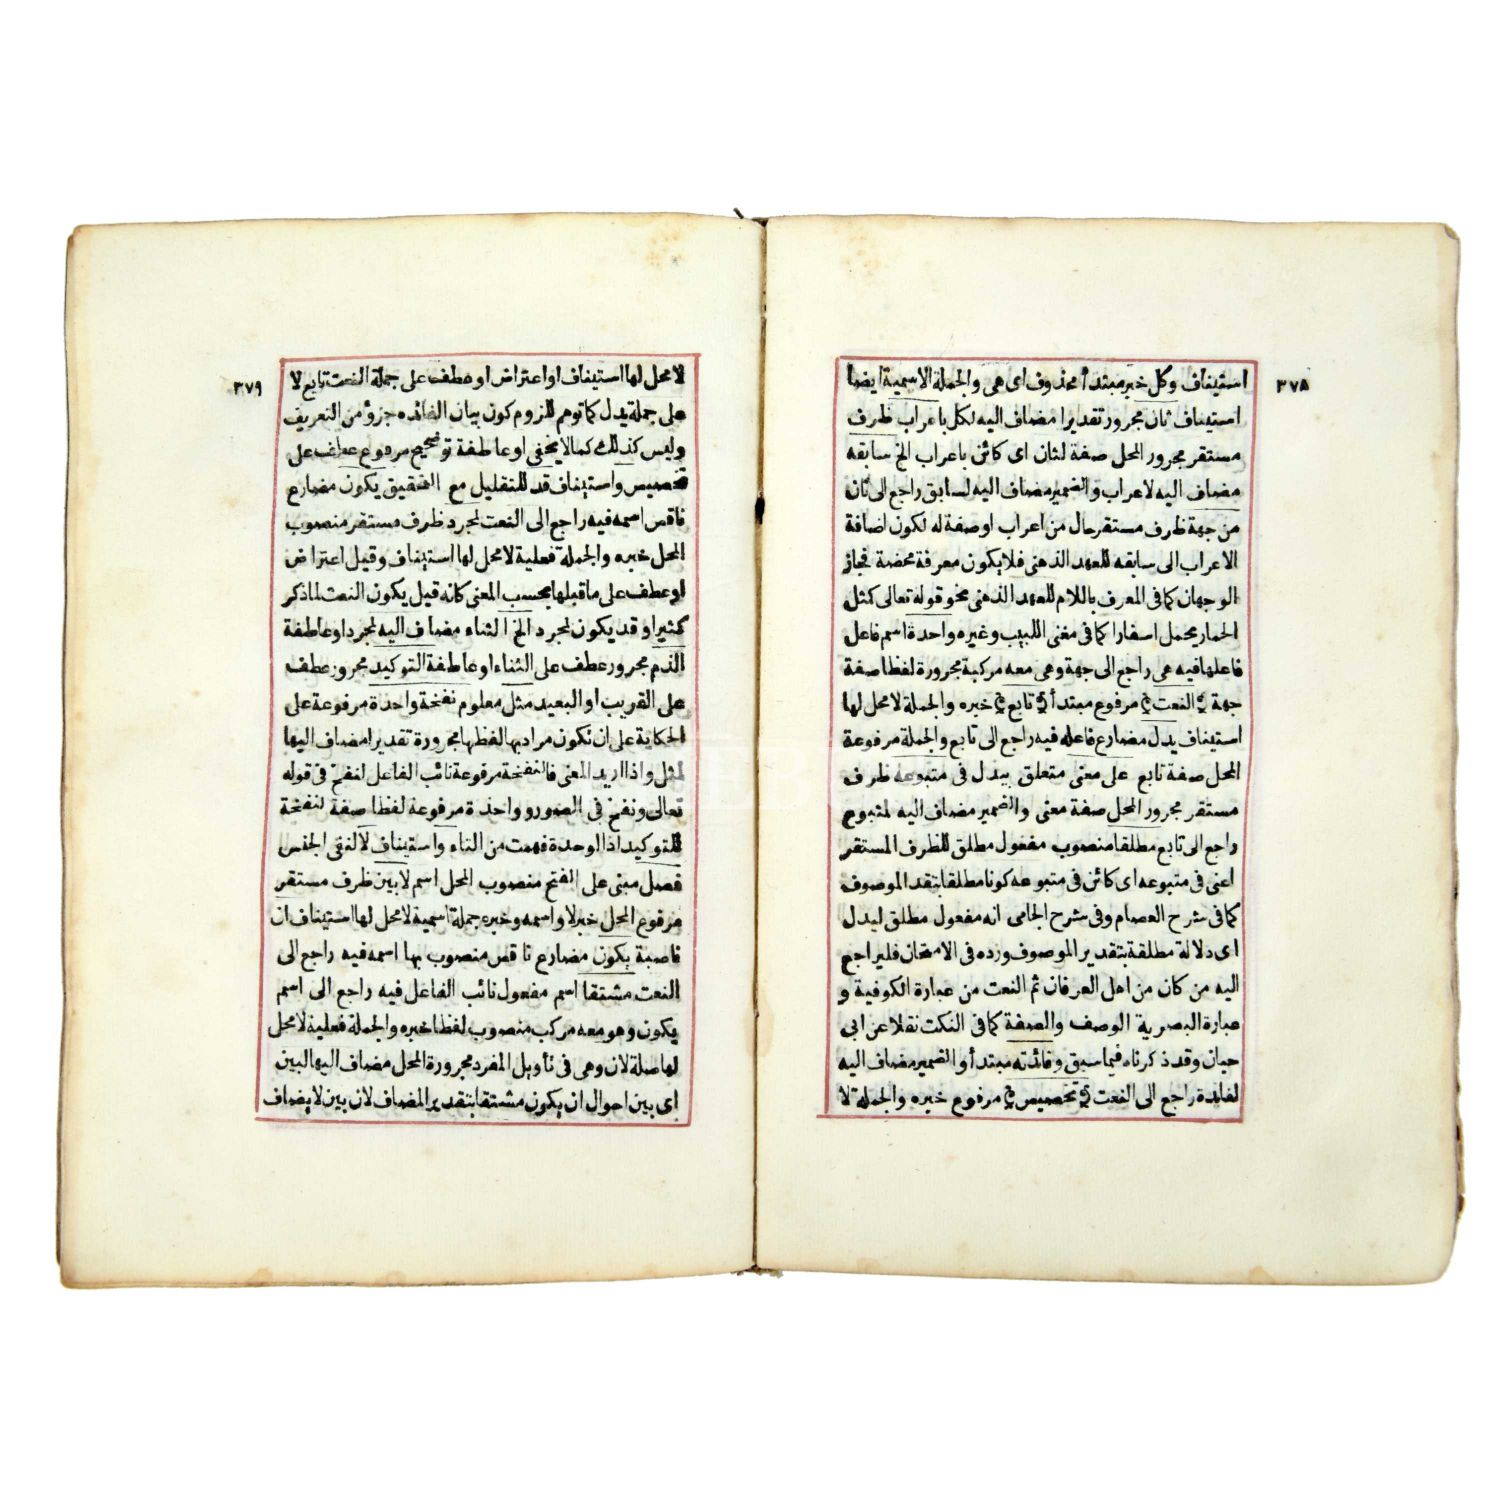 ٣٧٨
استيناف وكل خبر مبتدأ محذوف اى هى والجملة الاسمية ايضا
استيناف ثان مجرور تقديرا مضاف اليه لكل باعراب ظرف
مستقر مجرور المحل صفة لثان اى كائن باعراب الخ سابقه
مضاف اليه لاعراب والضمير مضاف اليه لسابق راجع الى ثان
من جهة ظرف مستقر حال من اعراب او صفة له لكون اضافة
الاعراب الى سابقه للعهد الذهنى فلا يكون معرفة محضة فجاز
الوجهان كما فى المعرف باللام للعهد الذهنى نحو قوله تعالى كمثل
الحمار يحمل اسفارا كما فى مغنى اللبيب وغيره واحدة اسم فاعل
فاعلها فيه هى راجع الى جهة وهى معه مركبة مجرورة لفظا صفة
جهة النعت مرفوع مبتدأ تابع خبره والجملة لا محل لها
استيناف يدل مضارع فاعله فيه راجع الى تابع والجملة مرفوعة
المحل صفة تابع على معنى متعلق بيدل فى متبوعه ظرف
مستقر مجرور المحل صفة معنى والضمير مضاف اليه لمتبوع
راجع الى تابع مطلقا منصوب مفعول مطلق للظرف المستقر
اعنى فى متبوعه اى كائن فى متبوعه كونا مطلقا بتقد الموصوف
كما فى شرح العصام وفى شرح الجامى انه مفعول مطلق ليدل
اى دلالة مطلقة بتقدير الموصوف ورده فى الامتحان فليراجع
اليه من كان من اهل العرفان ثم النعت من عبارة الكوفية و
عبارة البصرية الوصف والصفة كما فى النكت نقلا عن ابى
حيان وقد ذكرناه فيما سبق وفائدته مبتدأ والضمير مضاف اليه
لفايدة راجع الى النعت تخصيص مرفوع خبره والجملة لا
٣٧٩
لا محل لها استيناف او اعتراض او عطف على جملة النعت تابع لا
على جملة يدل كما توهم للزوم كون بيان الفائده جزؤ من التعريف
وليس كذلك كما لا يخفى او عاطفة توضيح مرفوع عطف على
تخصيص واستيناف قد للتقليل مع التحقيق يكون مضارع
ناقص اسمه فيه راجع الى النعت لمجرد ظرف مستقر منصوب
المحل خبره والجملة فعلية لا محل لها استيناف وقيل اعتراض
او عطف على ما قبلها بحسب المعنى كانه قيل يكون النعت لما ذكر
كثيرا وقد يكون لمجرد الخ الثناء مضاف اليه لمجرد او عاطفة
الذم مجرور عطف على الثناء او عاطفة التوكيد مجرور عطف
على القريب او البعيد مثل معلوم نفخة واحدة مرفوعة على
الحكاية على ان تكون مرادبها لفظها مجرورة تقديرا مضاف اليها
لمثل واذا اريد المعنى فالنفخة مرفوعة نائب الفاعل لنفخ فى قوله
تعالى ونفخ فى الصور وواحدة مرفوعة لفظا صفة لنفخة
للتوكيد اذ الوحدة فهمت من التاء واستيناف لا لنفى الجنس
فصل مبنى على الفتح منصوب المحل اسم لا بين ظرف مستقر
مرفوع المحل خبر لا واسمه وخبره جملة اسمية لا محل لها استيناف ان
ناصبة يكون مضارع ناقص منصوب بها اسمه فيه راجع الى
النعت مشتقا اسم مفعول نائب الفاعل فيه راجع الى اسم
يكون وهو معه مركب منصوب لفظا خبره والجملة فعلية لا محل
لها صلة لان وهى فى تأويل المفرد مجرورة المحل مضاف اليها لبين
اى بين احوال ان يكون مشتقا بتقدير المضاف لان بين لا يضاف